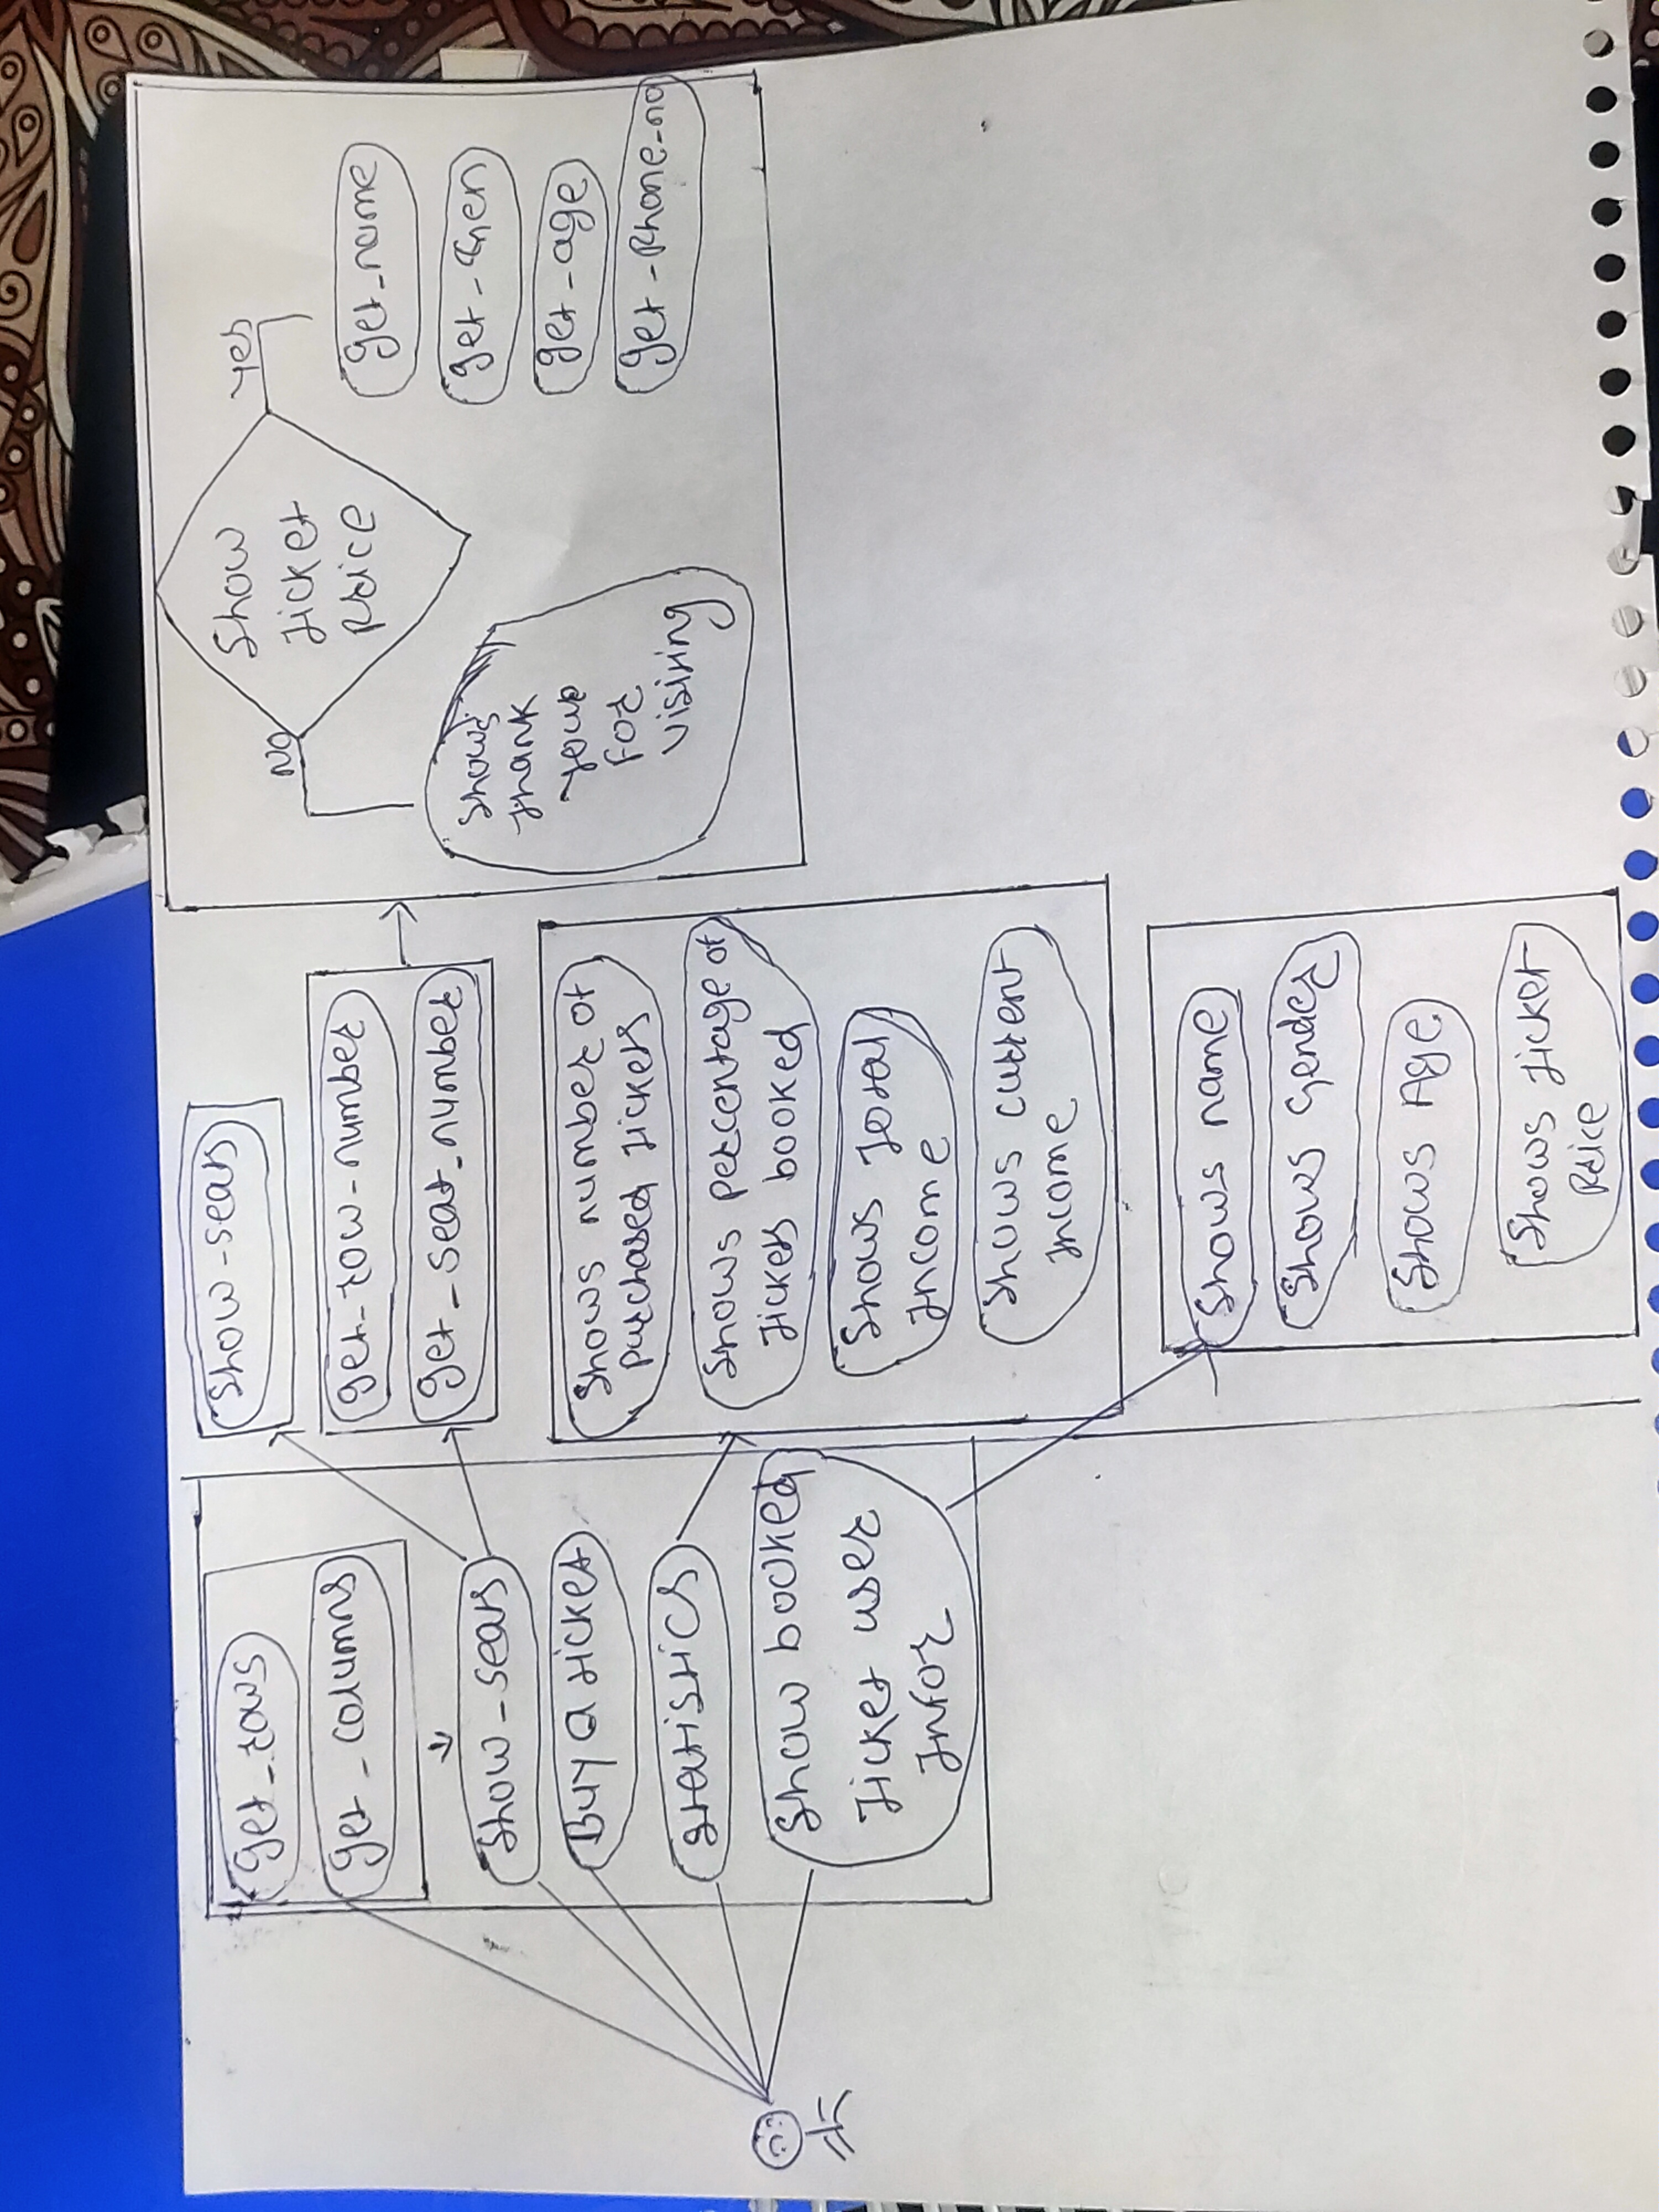 get_rows
get_columns
show_seats
Buy a ticket
statistics
Show booked
Ticket user
Infor
show_seats
get_row_number
get_seat_number
Shows number of
purchased tickets
Shows percentage of
tickets booked
Shows total
Income
Shows current
Income
Shows name
Shows gender
Shows Age
Shows ticket
Price
Show
ticket
price
No
Yes
Shows
thank
you
for
visiting
get_name
get_age
get_phone_no